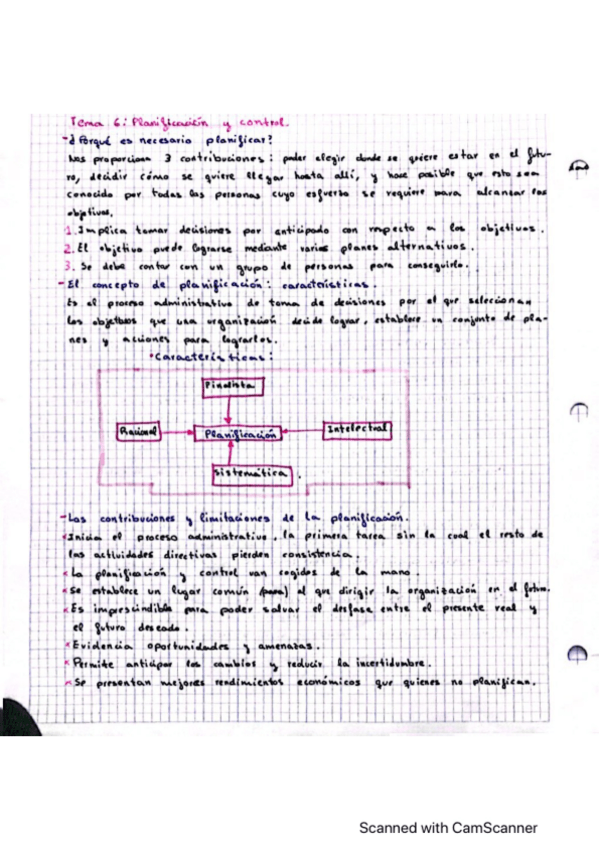 Tema 6: Planificación y control.
- ¿Porqué es necesario planificar?
Nos proporciona 3 contribuciones: poder elegir donde se quiere estar en el futu-
ro, decidir cómo se quiere llegar hasta allí, y hace posible que esto sea
conocido por todas las personas cuyo esfuerzo se requiere para alcanzar los
objetivos.
1. Implica tomar decisiones por anticipado con respecto a los objetivos.
2. El objetivo puede lograrse mediante varios planes alternativos.
3. Se debe contar con un grupo de personas para conseguirlo.
- El concepto de planificación: características.
Es el proceso administrativo de toma de decisiones por el que seleccionan
los objetivos que una organización decide lograr, establece un conjunto de pla-
nes y acciones para lograrlos.
• Características:
Finalista
Racional
Planificación
Intelectual
Sistemática
- Las contribuciones y limitaciones de la planificación.
* Inicia el proceso administrativo, la primera tarea sin la cual el resto de
las actividades directivas pierden consistencia.
* La planificación y control van cogidos de la mano.
* Se establece un lugar común (para) al que dirigir la organización en el futuro.
* Es imprescindible para poder salvar el desfase entre el presente real y
el futuro deseado.
* Evidencia oportunidades y amenazas.
* Permite anticipar los cambios y reducir la incertidumbre.
* Se presentan mejores rendimientos económicos que quienes no planifican.
Scanned with CamScanner